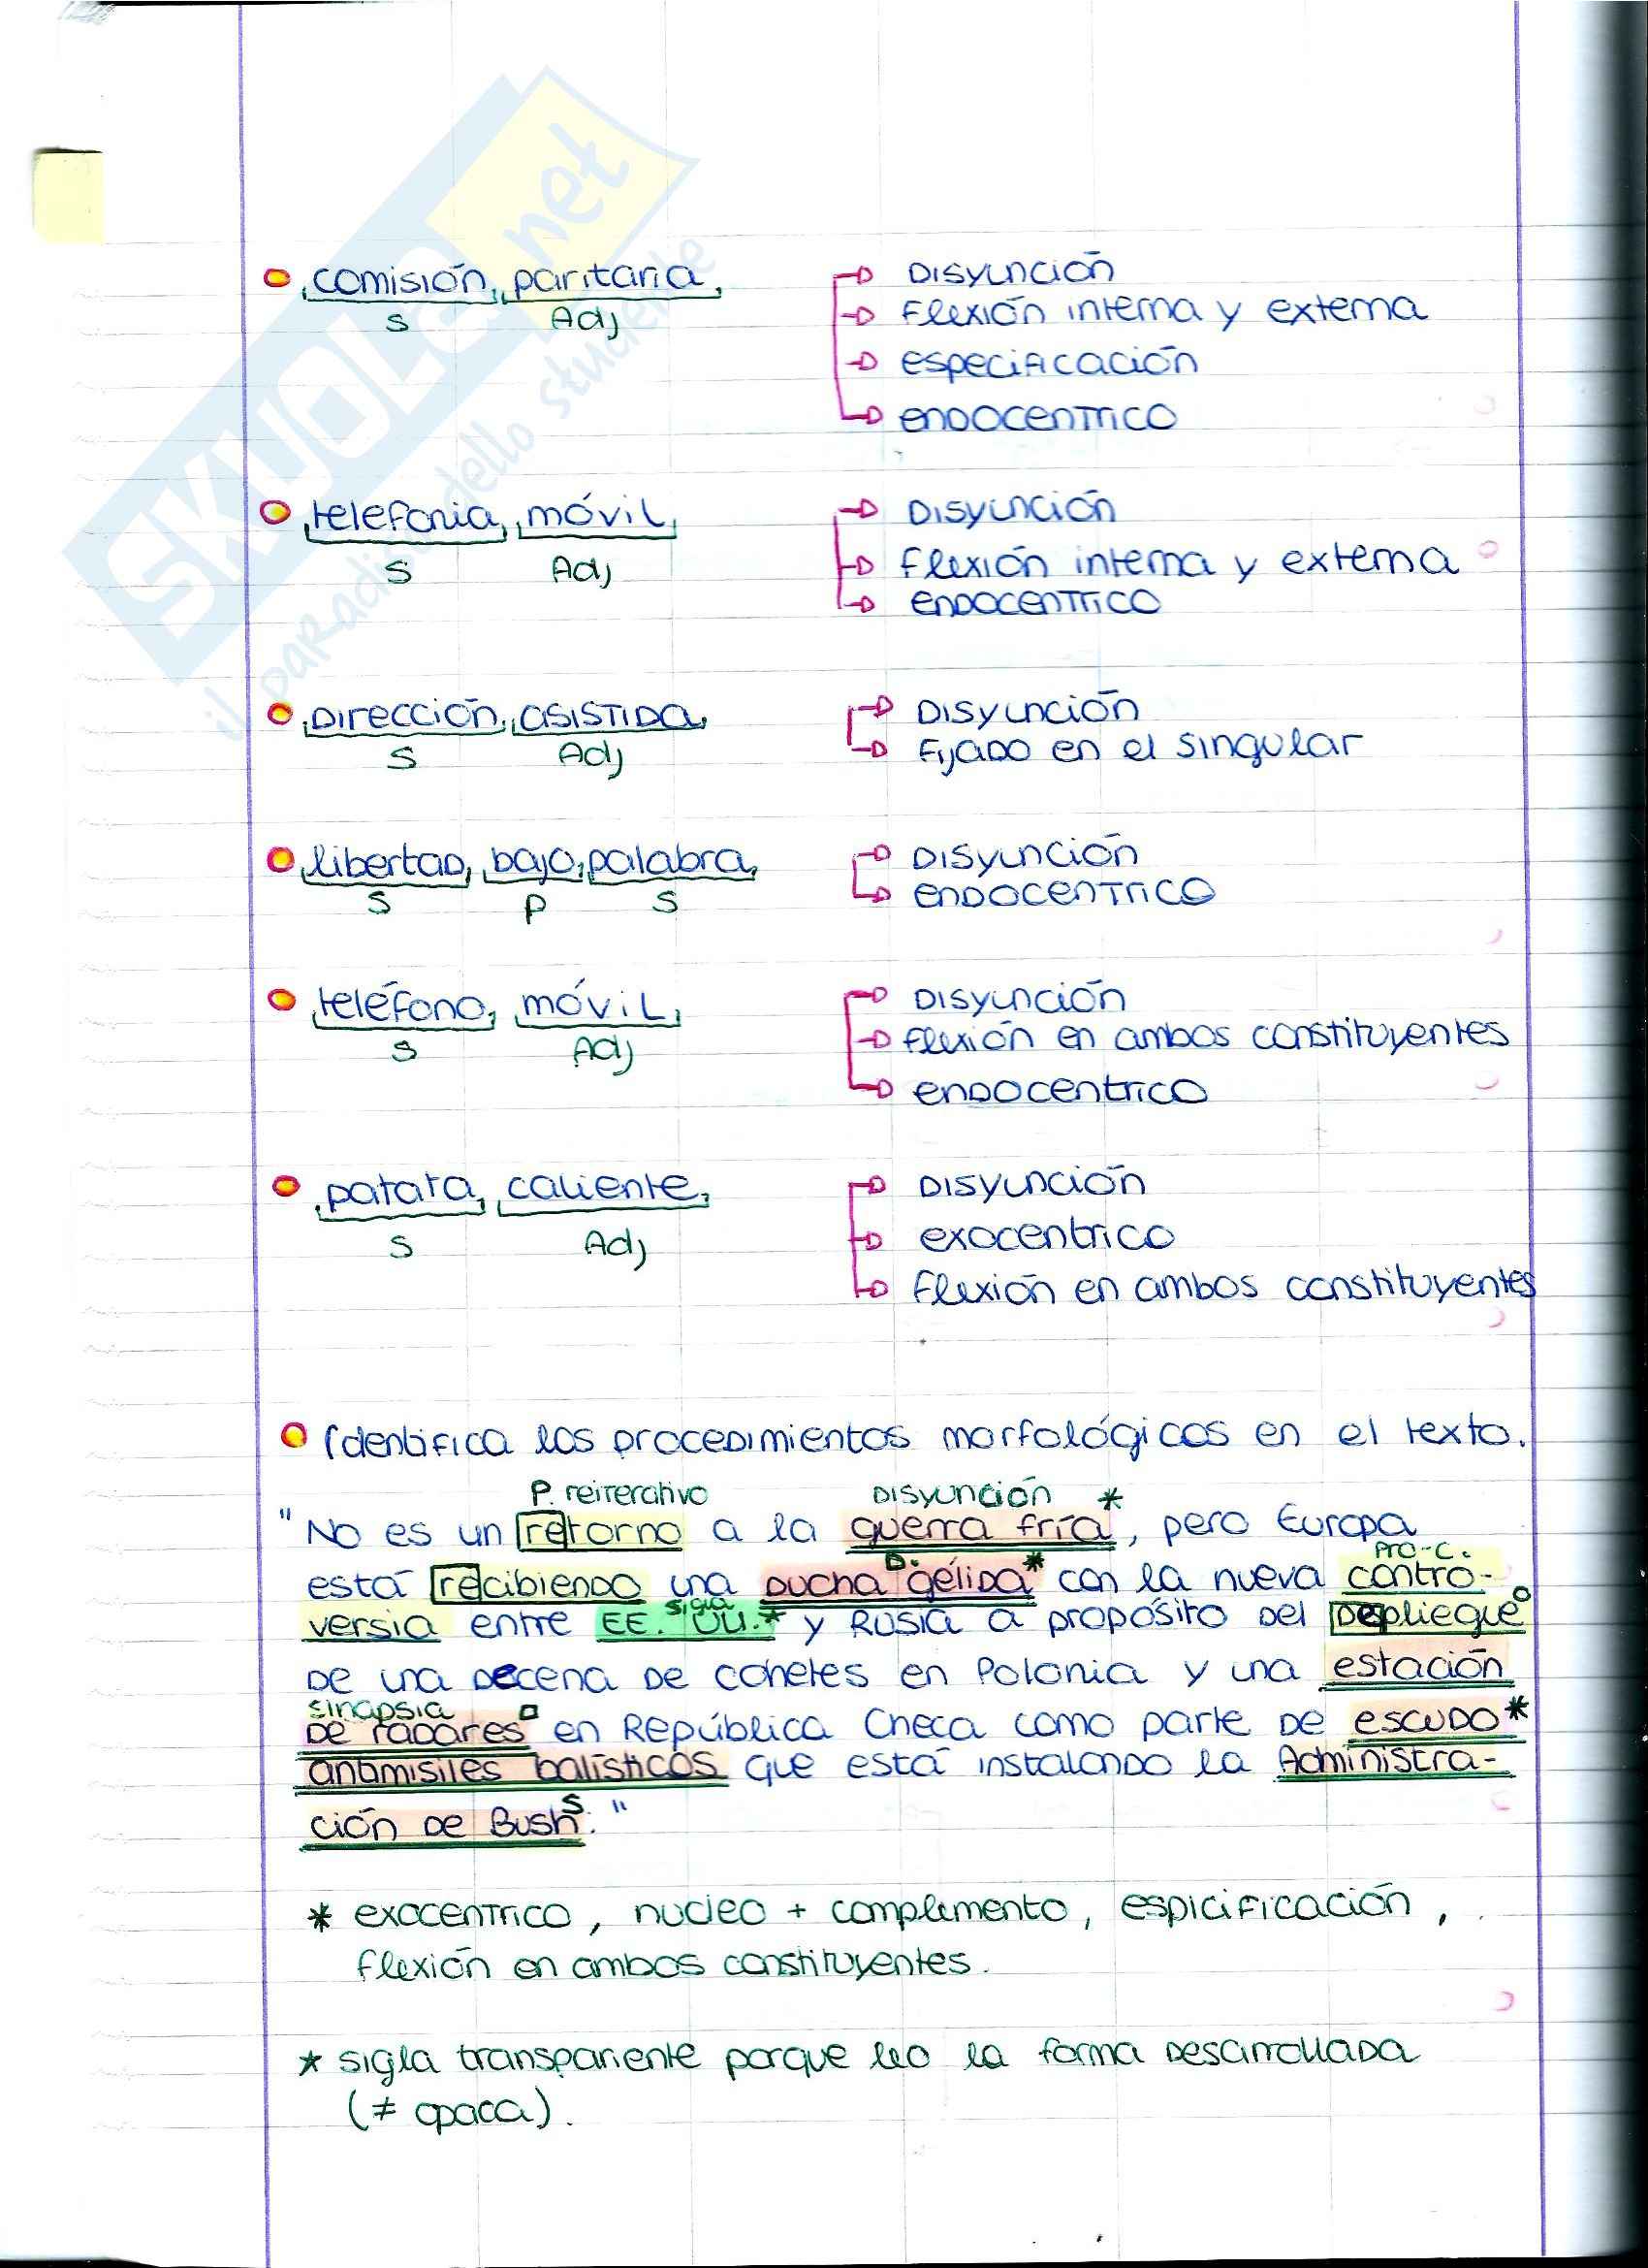 SKUOLA.net
il paradiso dello studente
comisión paritaria
S Adj
Disyunción
flexión interna y externa
especificación
endocentrico
telefonia móvil
S Adj
Disyunción
flexión interna y externa
endocentrico
Dirección asistida
S Adj
Disyunción
Fijado en el singular
libertad bajo palabra
S P S
Disyunción
endocentrico
teléfono móvil
S Adj
Disyunción
flexión en ambos constituyentes
endocentrico
patata caliente
S Adj
Disyunción
exocentrico
flexión en ambos constituyentes
Identifica los procedimientos morfológicos en el texto.
P. reiterativo Disyunción *
"No es un retorno a la guerra fría, pero Europa
D. * pro-c.
está recibiendo una ducha gélida con la nueva contro-
sigla
versia entre EE. UU.* y Rusia a propósito del depliegue°
de una decena de cohetes en Polonia y una estación
sinapsia
de radares□ en República Checa como parte de escudo*
antimisiles balísticos que está instalando la Administra-
ción de Bush. S "
* exocentrico, nucleo + complemento, espicificación,
flexión en ambos constituyentes.
* sigla transpariente porque leo la forma desarrollada
(≠ opaca).